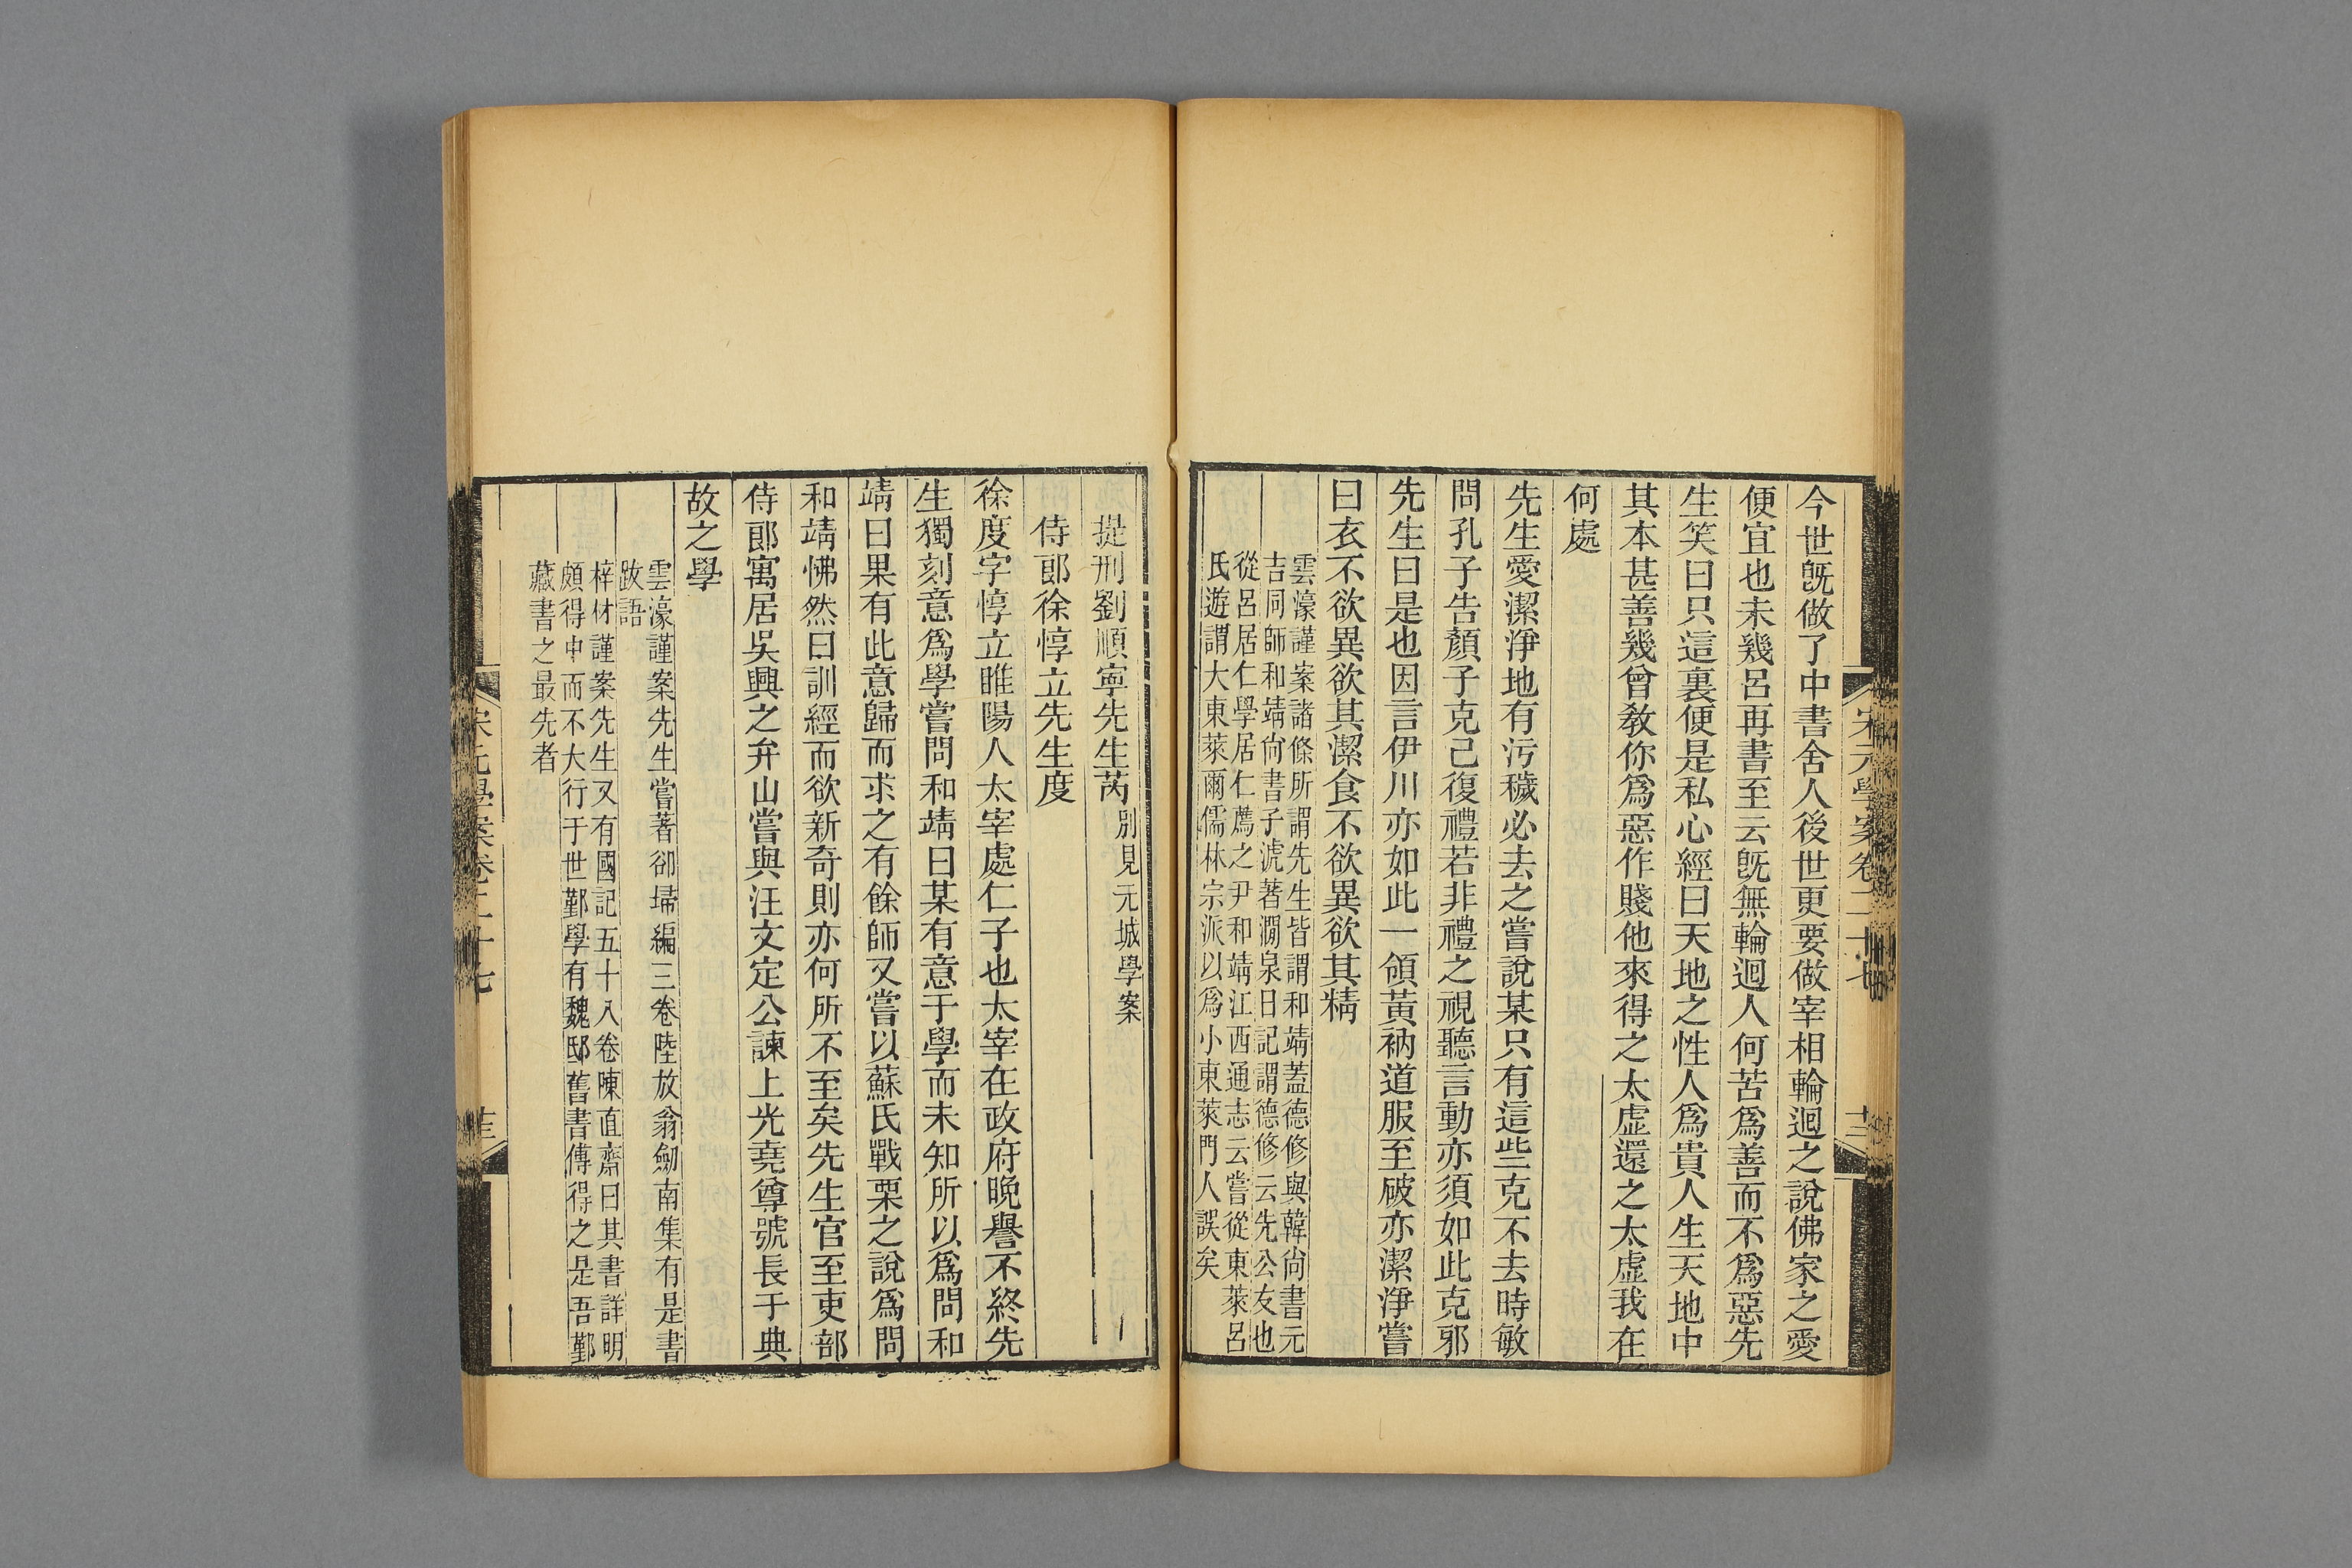 今世旣做了中書舍人後世更要做宰相輪迴之說佛家之愛
便宜也未幾呂再書至云旣無輪迴人何苦爲善而不爲惡先
生笑曰只這裏便是私心經曰天地之性人爲貴人生天地中
其本甚善幾曾教你爲惡作賤他來得之太虛還之太虛我在
何處
先生愛潔淨地有污穢必去之嘗說某只有這些克不去時敏
問孔子告顏子克己復禮若非禮之視聽言動亦須如此克邪
先生曰是也因言伊川亦如此一領黃衲道服至破亦潔淨嘗
曰衣不欲異欲其潔食不欲異欲其精
雲濠謹案諸條所謂先生皆謂和靖蓋德修與韓尙書元
吉同師和靖尙書子淲著澗泉日記謂德修云先公友也
從呂居仁學居仁薦之尹和靖江西通志云嘗從東萊呂
氏遊謂大東萊爾儒林宗派以爲小東萊門人誤矣
宋元學案卷二十七
提刑劉順寧先生芮別見元城學案
侍郞徐惇立先生度
徐度字惇立睢陽人太宰處仁子也太宰在政府晚譽不終先
生獨刻意爲學嘗問和靖曰某有意于學而未知所以爲問和
靖曰果有此意歸而求之有餘師又嘗以蘇氏戰栗之說爲問
和靖怫然曰訓經而欲新奇則亦何所不至矣先生官至吏部
侍郞寓居吳興之弁山嘗與汪文定公諫上光堯尊號長于典
故之學
雲濠謹案先生嘗著卻埽編三卷陸放翁劒南集有是書
跋語
梓材謹案先生又有國記五十八卷陳直齋曰其書詳明
頗得中而不大行于世鄞學有魏邸舊書傳得之是吾鄞
藏書之最先者
宋元學案卷二十七